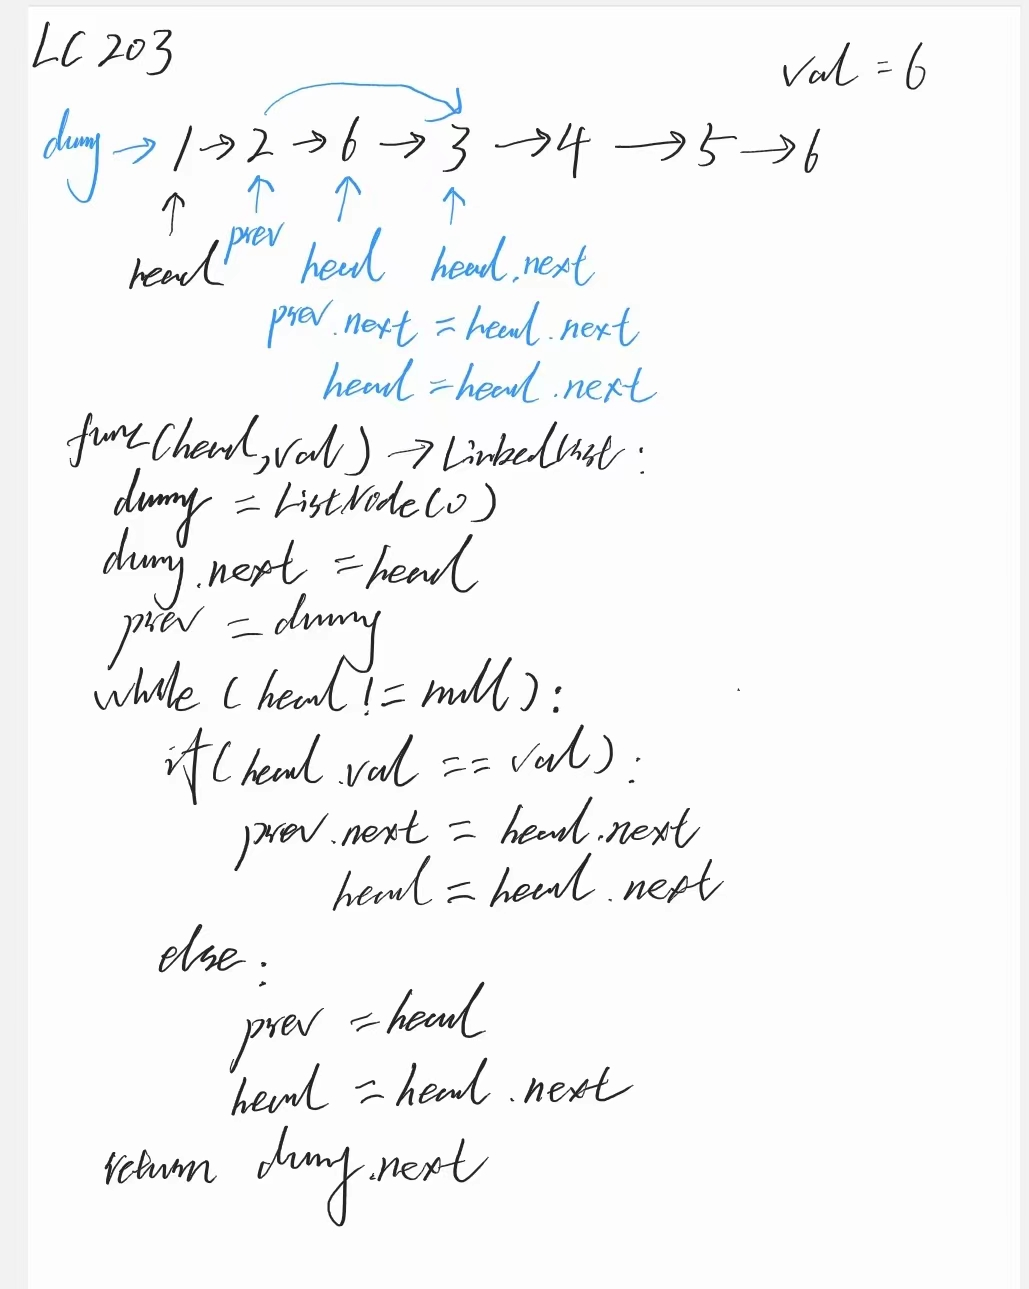 LC 203
val = 6
dumy → 1 → 2 → 6 → 3 → 4 → 5 → 6
head prev head head.next
prev.next = head.next
head = head.next
func(head, val) → LinkedList:
dummy = ListNode(0)
dumy.next = head
prev = dummy
while (head != null):
if(head.val == val):
prev.next = head.next
head = head.next
else:
prev = head
head = head.next
return dumy.next